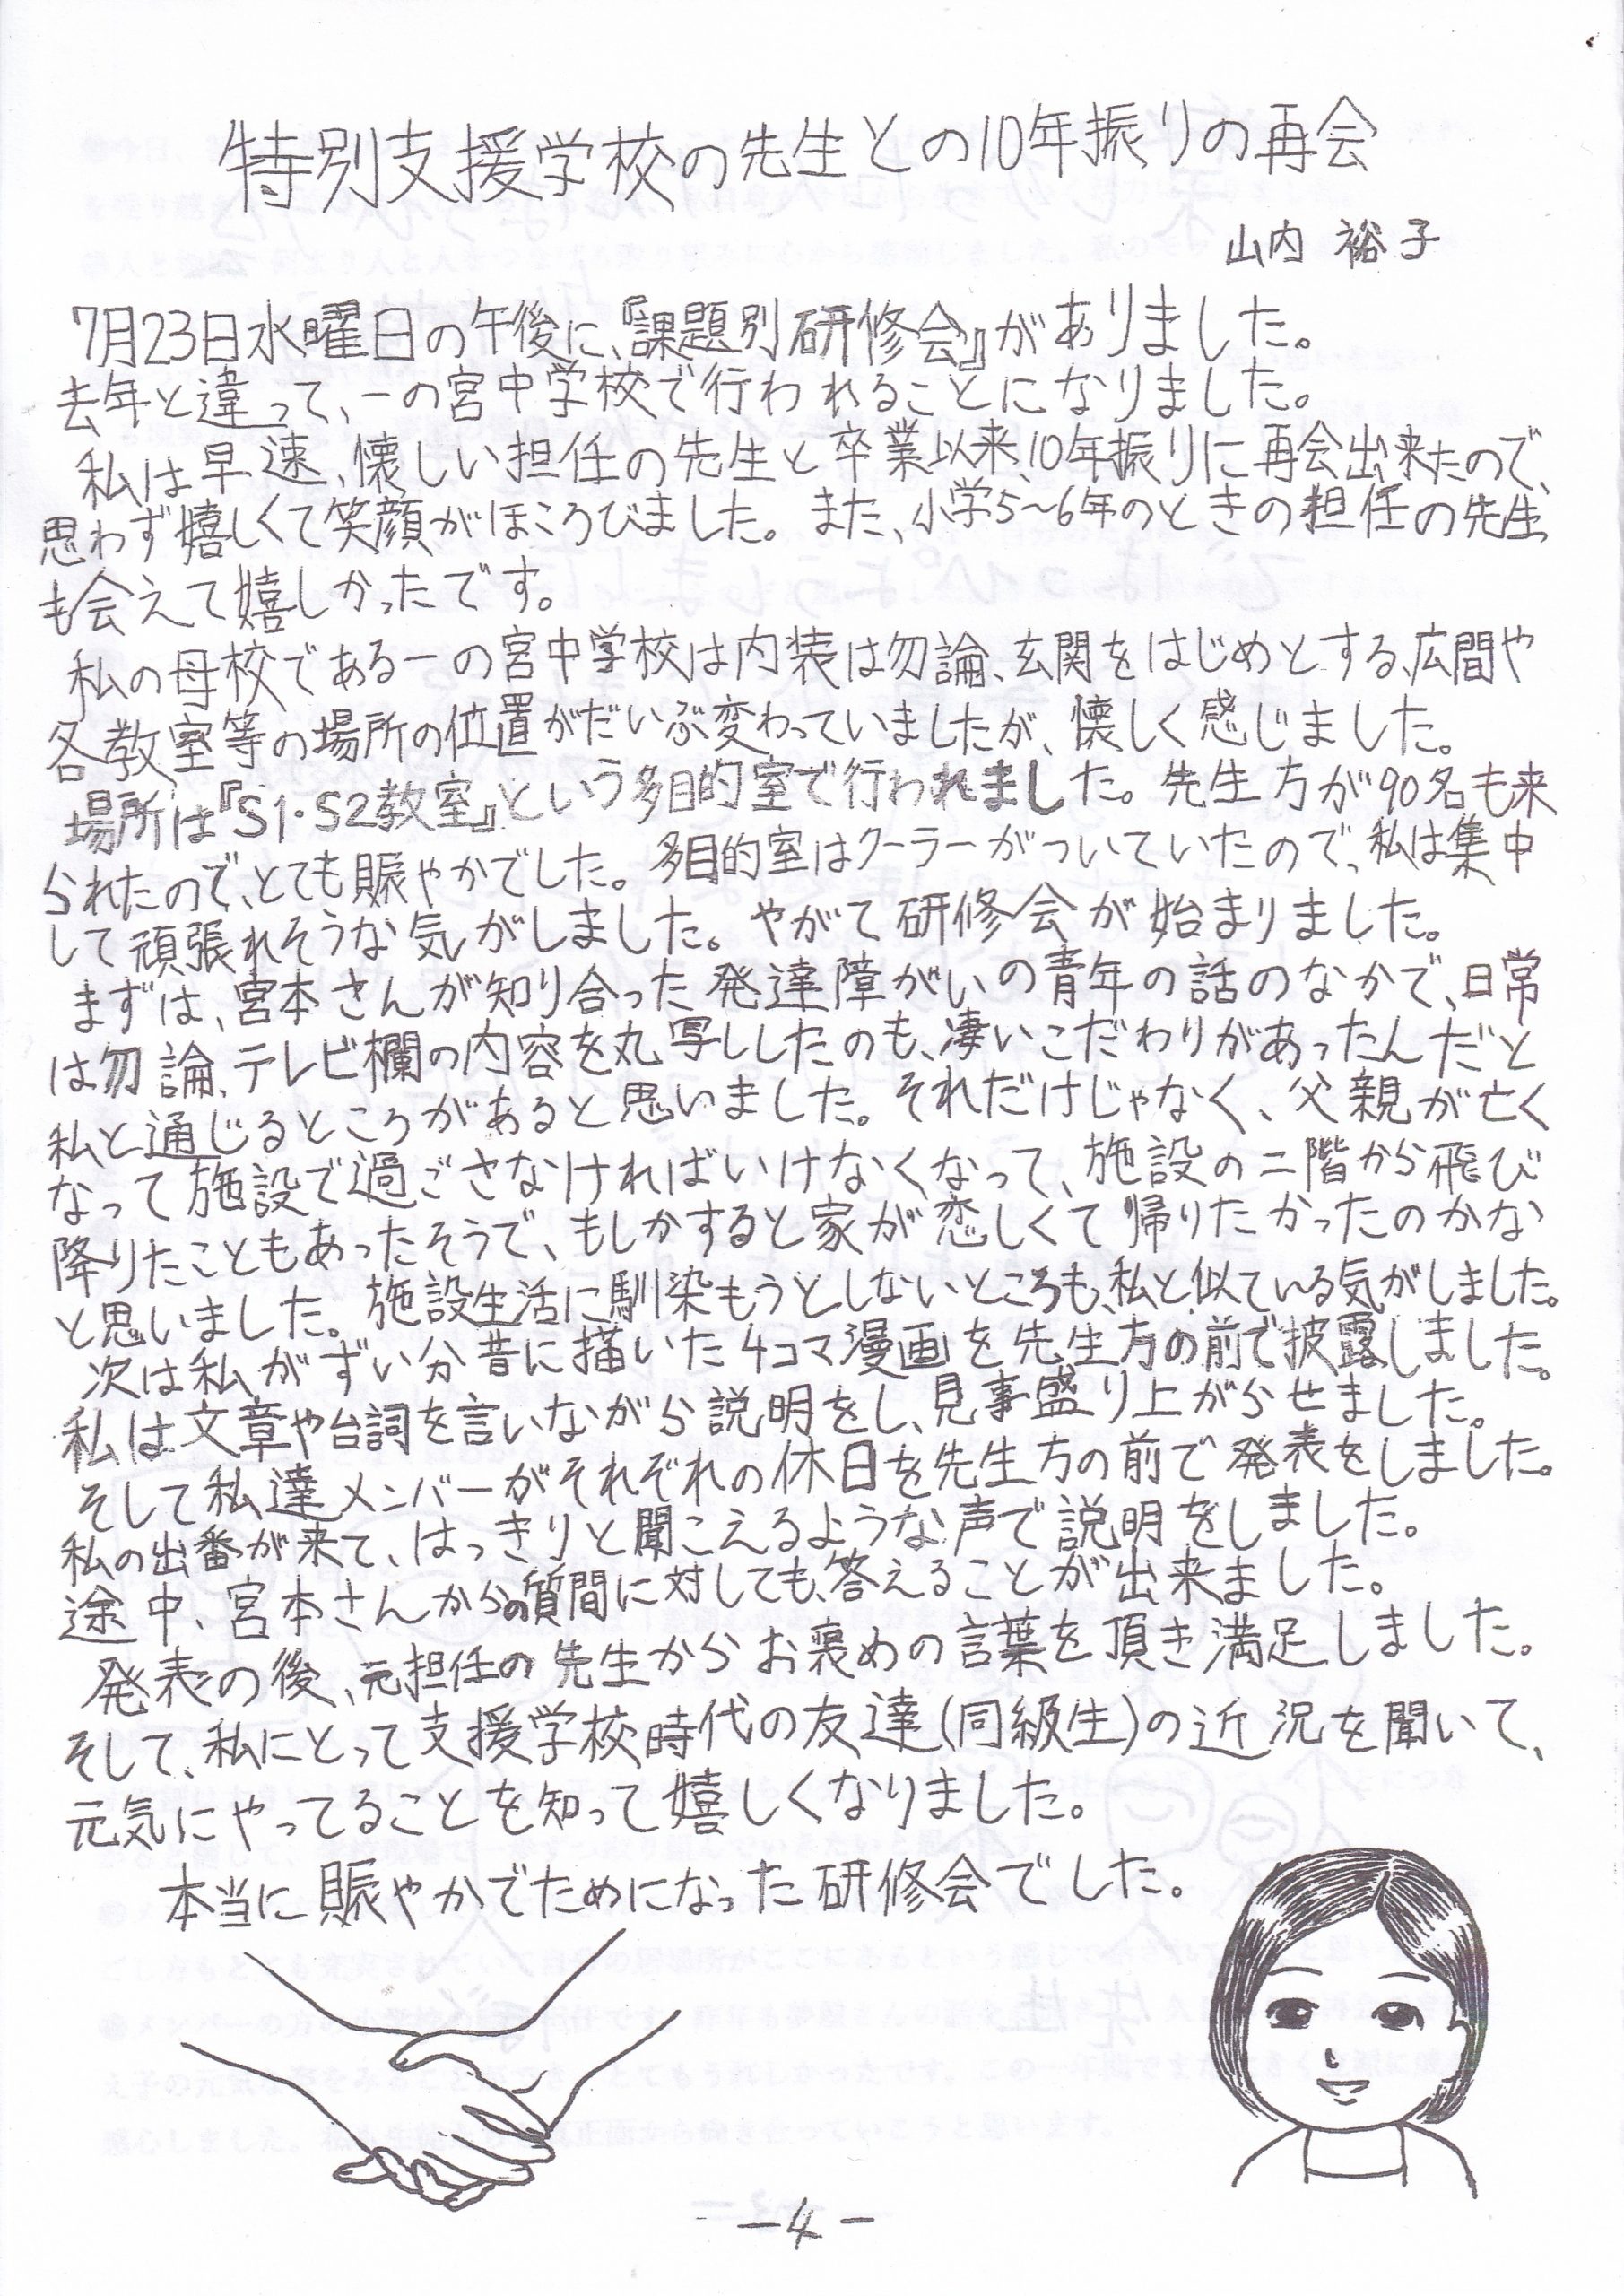 特別支援学校の先生との10年振りの再会
山内 裕子
7月23日水曜日の午後に、『課題別研修会』がありました。
去年と違って、一の宮中学校で行われることになりました。
私は早速、懐しい担任の先生と卒業以来、10年振りに再会出来たので、
思わず嬉しくて笑顔がほころびました。また、小学5〜6年のときの担任の先生
も会えて嬉しかったです。
私の母校である一の宮中学校は内装は勿論、玄関をはじめとする、広間や
各教室等の場所の位置がだいぶ変わっていましたが、懐しく感じました。
場所は『S1・S2教室』という多目的室で行われました。先生方が90名も来
られたので、とても賑やかでした。多目的室はクーラーがついていたので、私は集中
して頑張れそうな気がしました。やがて研修会が始まりました。
まずは、宮本さんが知り合った発達障がいの青年の話のなかで、日常
は勿論、テレビ欄の内容を丸写ししたのも、凄いこだわりがあったんだと
私と通じるところがあると思いました。それだけじゃなく、父親が亡く
なって施設で過ごさなければいけなくなって、施設の二階から飛び
降りたこともあったそうで、もしかすると家が恋しくて帰りたかったのかな
と思いました。施設生活に馴染もうとしないところも、私と似ている気がしました。
次は私がずい分昔に描いた4コマ漫画を先生方の前で披露しました。
私は文章や台詞を言いながら説明をし、見事盛り上がらせました。
そして私達メンバーがそれぞれの休日を先生方の前で発表をしました。
私の出番が来て、はっきりと聞こえるような声で説明をしました。
途中、宮本さんからの質問に対しても、答えることが出来ました。
発表の後、元担任の先生からお褒めの言葉を頂き満足しました。
そして、私にとって支援学校時代の友達(同級生)の近況を聞いて、
元気にやってることを知って嬉しくなりました。
本当に賑やかでためになった研修会でした。
－4－